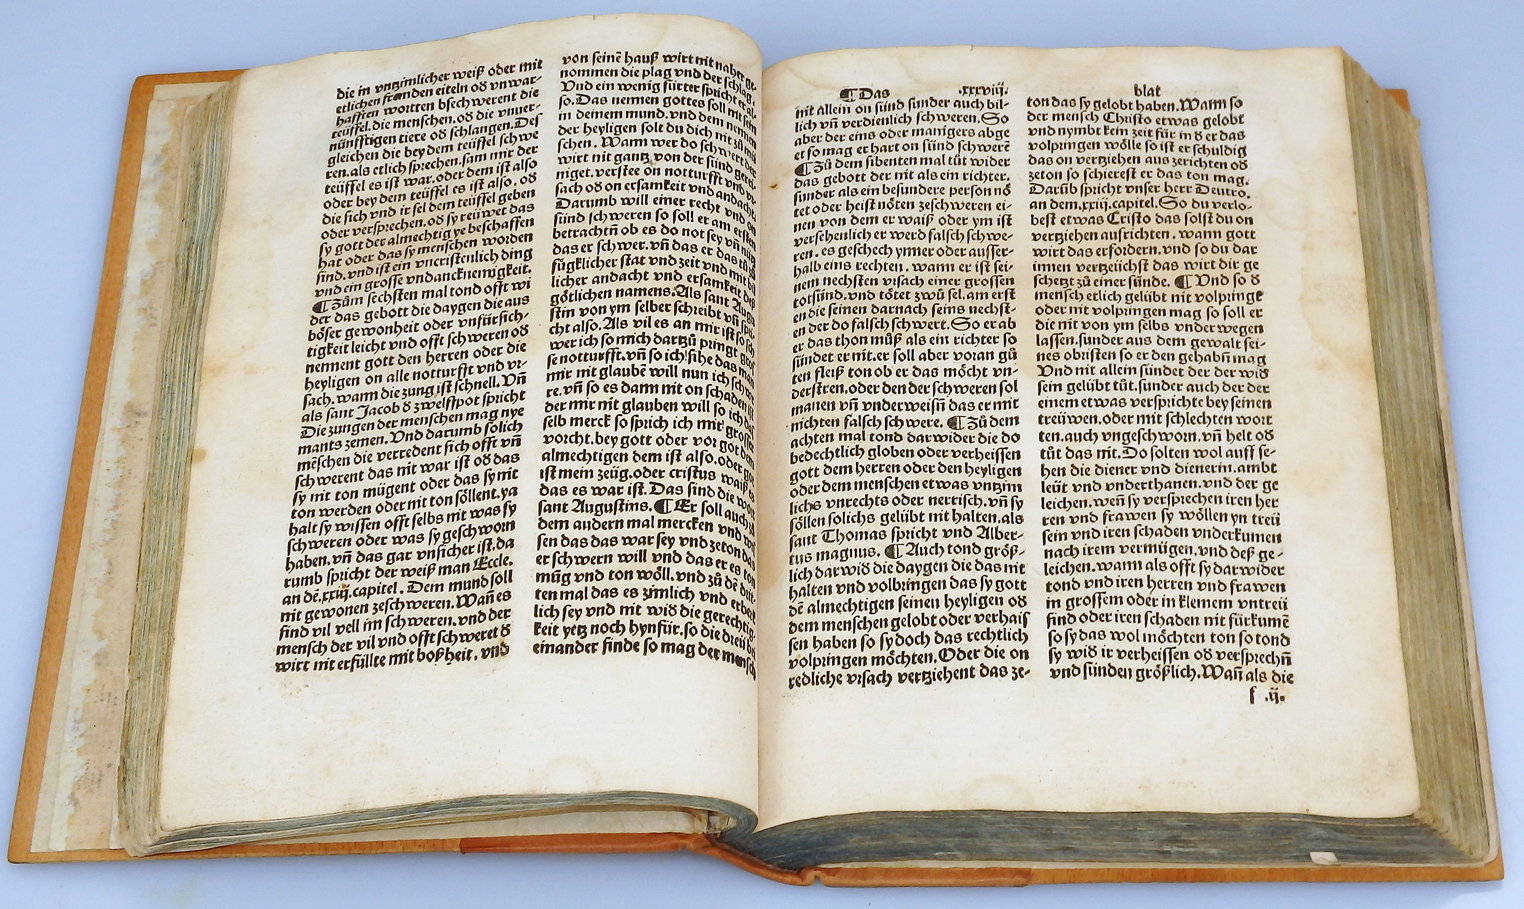 die in vnzimlicher weiß oder mit
etlichen fremden eiteln oď vnwar-
hafften wortten bſchwerent die
teüffel.die menſchen.oď die vnuer-
nünfftigen tiere oď ſchlangen.Des
gleichen die bey dem teüffel ſchwe
ren.als etlich ſprechen.ſam mir der
teüffel es iſt war.oder dem iſt alſo
oder bey dem teüffel es iſt alſo.oď
die ſich vnd ir ſel dem teüffel geben
oder verſprechen.oď ſy reüwet das
ſy gott der almechtig ye beſchaffen
hat oder das ſy menſchen worden
ſind.vnd iſt ein vncriſtenlich ding
vnd ein groſſe vndancknemigkeit.
¶Zům ſechſten mal tond offt wi
der das gebott die daygen die aus
böſer gewonheit oder vnfürſich-
tigkeit leicht vnd offt ſchweren oď
nennent gott den herren oder die
heyligen on alle notturfft vnd vr-
ſach.wann die zung iſt ſchnell.Vn̄
als ſant Jacob ď zwelfſpot ſpricht
Die zungen der menſchen mag nye
mants zemen.Vnd darumb ſolich
mēſchen die verredent ſich offt vn̄
ſchwerent das nit war iſt oď das
ſy nit ton mügent oder das ſy nit
ton werden oder nit ton ſöllent.ya
halt ſy wiſſen offt ſelbs nit was ſy
ſchweren oder was ſy geſchworn
haben.vn̄ das gar vnſicher iſt.da
rumb ſpricht der weiß man Eccle.
an dē.xxiij.capitel.Dem mund ſoll
nit gewonen zeſchweren.Wan̄ es
ſind vil vell im ſchweren.vnd der
menſch der vil vnd offt ſchweret ď
wirt nit erfüllte mit boßheit.vnd
von ſeinē hauß wirt nit naher ge-
nommen die plag vnd der ſchlag.
Vnd ein wenig fürter ſpricht er al-
ſo.Das nennen gottes ſoll nit ſein
in deinem mund.vnd dem nennen
der heyligen ſolt du dich nit zů mi
ſchen.Wann wer do ſchwert der
wirt nit gantz von der ſünd gerei-
niget.verſtee on notturfft vnd vr-
ſach oď on erſamkeit vnd andacht.
Darumb will einer recht vnd on
ſünd ſchweren ſo ſoll er am erſten
betrachtn̄ ob es do not ſey vn̄ nütz
das er ſchwer.vn̄ das er das tů zů
fügklicher ſtat vnd zeit vnd mit bil
licher andacht vnd erſamkeit des
götlichen namens.Als ſant Augu
ſtin von ym ſelber ſchreibt vn̄ ſpri
cht alſo.Als vil es an mir iſt ſo ſch
wer ich ſo mich dartzů pringt groſ
ſe notturfft.vn̄ ſo ich ſihe das man
mir nit glaubē will nun ich ſchwe
re.vn̄ ſo es dann nit on ſchaden iſt
der mir nit glauben will ſo ich das
ſelb merck ſo ſprich ich mit groſſer
vorcht.bey gott oder vor got dem
almechtigen dem iſt alſo.oder got
iſt mein zeüg.oder criſtus waiß es
das es war iſt.Das ſind die wort
ſant Auguſtins.¶Er ſoll auch zů
dem andern mal mercken vnd wiſ
ſen das das war ſey vnd ze ton das
er ſchwern will vnd das er es ton
müg vnd ton wöll.vnd zů dē drit-
ten mal das es zimlich vnd erber
lich ſey vnd nit wiď die gerechtig-
keit yetz noch hynfür.ſo die dreü bey
einander ſinde ſo mag der menſch
¶Das .xxxviij. blat
nit allein on ſünd ſunder auch bil-
lich vn̄ verdienlich ſchweren.So
aber der eins oder manigers abge
et ſo mag er hart on ſünd ſchwerē
¶Zů dem ſibenten mal tůt wider
das gebott der nit als ein richter.
ſunder als ein beſundere perſon nö
tet oder heiſt nöten zeſchweren ei-
nen von dem er waiß oder ym iſt
verſehenlich er werd falſch ſchwe-
ren.es geſchech ymer oder auſſer-
halb eins rechten.wann er iſt ſei-
nem nechſten vrſach einer groſſen
totſünd.vnd tötet zwů ſel.am erſt
en die ſeinen darnach ſeins nechſt-
en der do falſch ſchwert.So er ab
er das thon můß als ein richter ſo
ſündet er nit.er ſoll aber voran gů
ten fleiß ton ob er das möcht vn-
derſtren.oder den der ſchweren ſol
manen vn̄ vnderweiſn̄ das er mit
nichten falſch ſchwere.¶Zů dem
achten mal tond darwider die do
bedechtlich globen oder verheiſſen
gott dem herren oder den heyligen
oder dem menſchen etwas vnzim
lichs vnrechts oder nerriſch.vn̄ ſy
ſöllen ſolichs gelübt nit halten.als
ſant Thomas ſpricht vnd Alber-
tus magnus.¶Auch tond größ-
lich darwiď die daygen die das nit
halten vnd volbringen das ſy gott
dē almechtigen ſeinen heyligen oď
dem menſchen gelobt oder verhaiſ
ſen haben ſo ſy doch das rechtlich
volpringen möchten.Oder die on
redliche vrſach vertziehent das ze-
ton das ſy gelobt haben.Wann ſo
der menſch Chriſto etwas gelobt
vnd nymbt kein zeit für in ď er das
volpringen wölle ſo iſt er ſchuldig
das on vertziehen auszerichten oď
zeton ſo ſchiereſt er das ton mag.
Darūb ſpricht vnſer herr Deutro.
an dem.xxiij.capitel.So du verlo-
beſt etwas Criſto das ſolſt du on
vertziehen ausrichten.wann gott
wirt das erfordern.vnd ſo du dar
innen vertzeüchſt das wirt dir ge
ſchetzt zů einer ſünde.¶Vnd ſo ď
menſch etlich gelübt nit volpringt
oder nit volpringen mag ſo ſoll er
die nit von ym ſelbs vnderwegen
laſſen.ſunder aus dem gewalt ſei-
nes obriſten ſo er den gehabn̄ mag
Vnd nit allein ſündet der der wiď
ſein gelübt tůt.ſunder auch der der
einem etwas verſpricht bey ſeinen
treüwen.oder mit ſchlechten wort
ten.auch vngeſchworn.vn̄ helt oď
tůt das nit.Do ſolten wol auff ſe-
hen die diener vnd dienerin.ambt
leüt vnd vnderthanen.vnd der ge
leichen.wen̄ ſy verſprechen iren her
ren vnd frawen ſy wöllen yn treü
ſein vnd iren ſchaden vnderkumen
nach irem vermügen.vnd deß ge-
leichen.wann als offt ſy darwider
tond vnd iren herren vnd frawen
in groſſem oder in kleinem vntreü
ſind oder iren ſchaden nit fürkumē
ſo ſy das wol möchten ton ſo tond
ſy wiď ir verheiſſen oď verſprechn̄
vnd ſünden größlich.Wan̄ als die
f .ij.